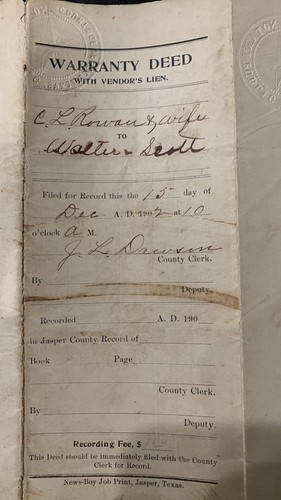 WARRANTY DEED
WITH VENDOR'S LIEN.
C. L. Rowan & wife
TO
Walter Scott
Filed for Record this the 15 day of
Dec A. D. 1902 at 10
o'clock A M.
J. L. Dawson
County Clerk.
By
Deputy.
Recorded A. D. 190
in Jasper County Record of
Book Page
County Clerk.
By
Deputy.
Recording Fee, $
This Deed should be immediately filed with the County
Clerk for Record.
News-Boy Job Print, Jasper, Texas.